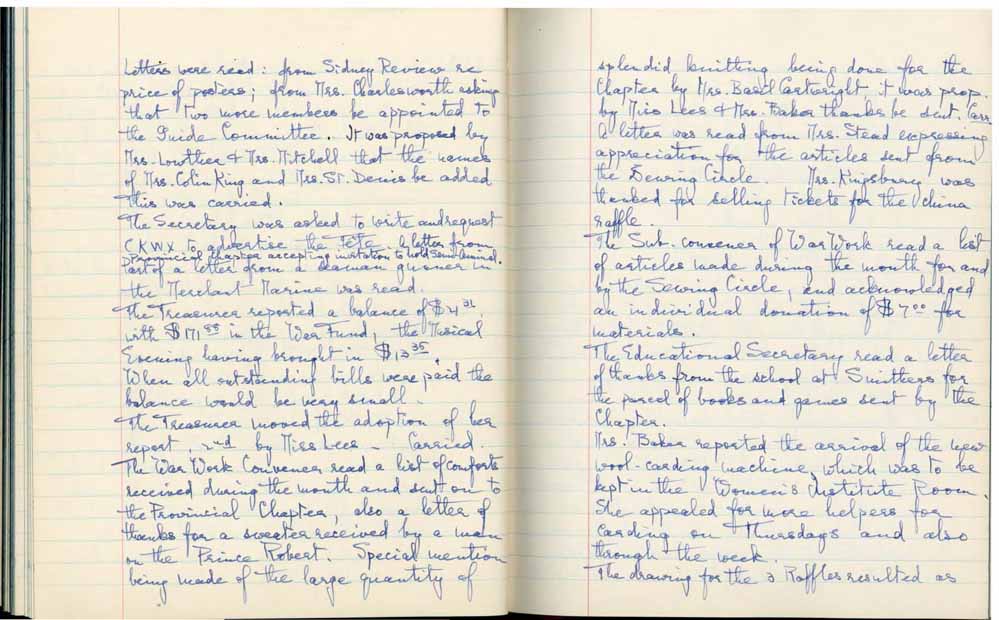 Letters were read: from Sidney Review re
price of posters; from Mrs. Charlesworth asking
that two more members be appointed to
the Guide Committee. It was proposed by
Mrs. Lowther & Mrs. Mitchell that the names
of Mrs. Colin King and Mrs. St. Denis be added
This was carried.
The Secretary was asked to write and request
C K W X to advertise the Fête. A letter from
Provincial Chapter accepting invitation to hold Semi-Annual.
Part of a letter from a seaman gunner in
the Merchant Marine was read.
The Treasurer reported a balance of $4 31
with $171 in the War Fund, the Musical
Evening having brought in $13 35.
When all outstanding bills were paid the
balance would be very small.
The Treasurer moved the adoption of her
report, 2nd by Miss Lees - Carried.
The War Work Convener read a list of comforts
received during the month and sent on to
the Provincial Chapter, also a letter of
thanks for a sweater received by a man
on the Prince Robert. Special mention
being made of the large quantity of
splendid knitting being done for the
Chapter by Mrs. Basil Cartwright. it was prop.
by Miss Lees & Mrs. Baker thanks be sent. Carr.
A letter was read from Mrs. Stead expressing
appreciation for the articles sent from
the Sewing Circle. Mrs. Kingsbury was
thanked for selling tickets for the china
raffle.
The Sub-convener of War Work read a list
of articles made during the month for and
by the Sewing Circle, and acknowledged
an individual donation of $7 00 for
materials.
The Educational Secretary read a letter
of thanks from the school at Smithers for
the parcel of books and games sent by the
Chapter.
Mrs. Baker reported the arrival of the new
wool-carding machine, which was to be
kept in the Women's Institute Room.
She appealed for more helpers for
carding on Thursdays and also
through the week.
The drawing for the 3 Raffles resulted as